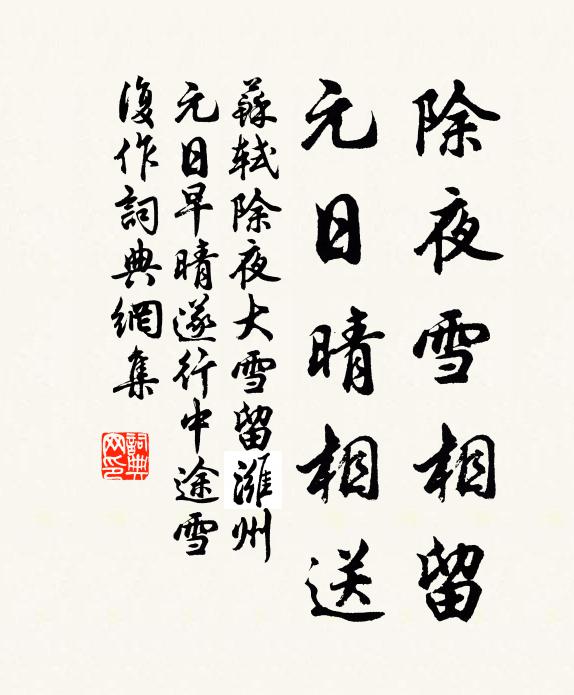 除夜雪相留
元日晴相送
蘇軾除夜大雪留濰州
元日早晴遂行中途雪
復作詞典網集
詞典網印